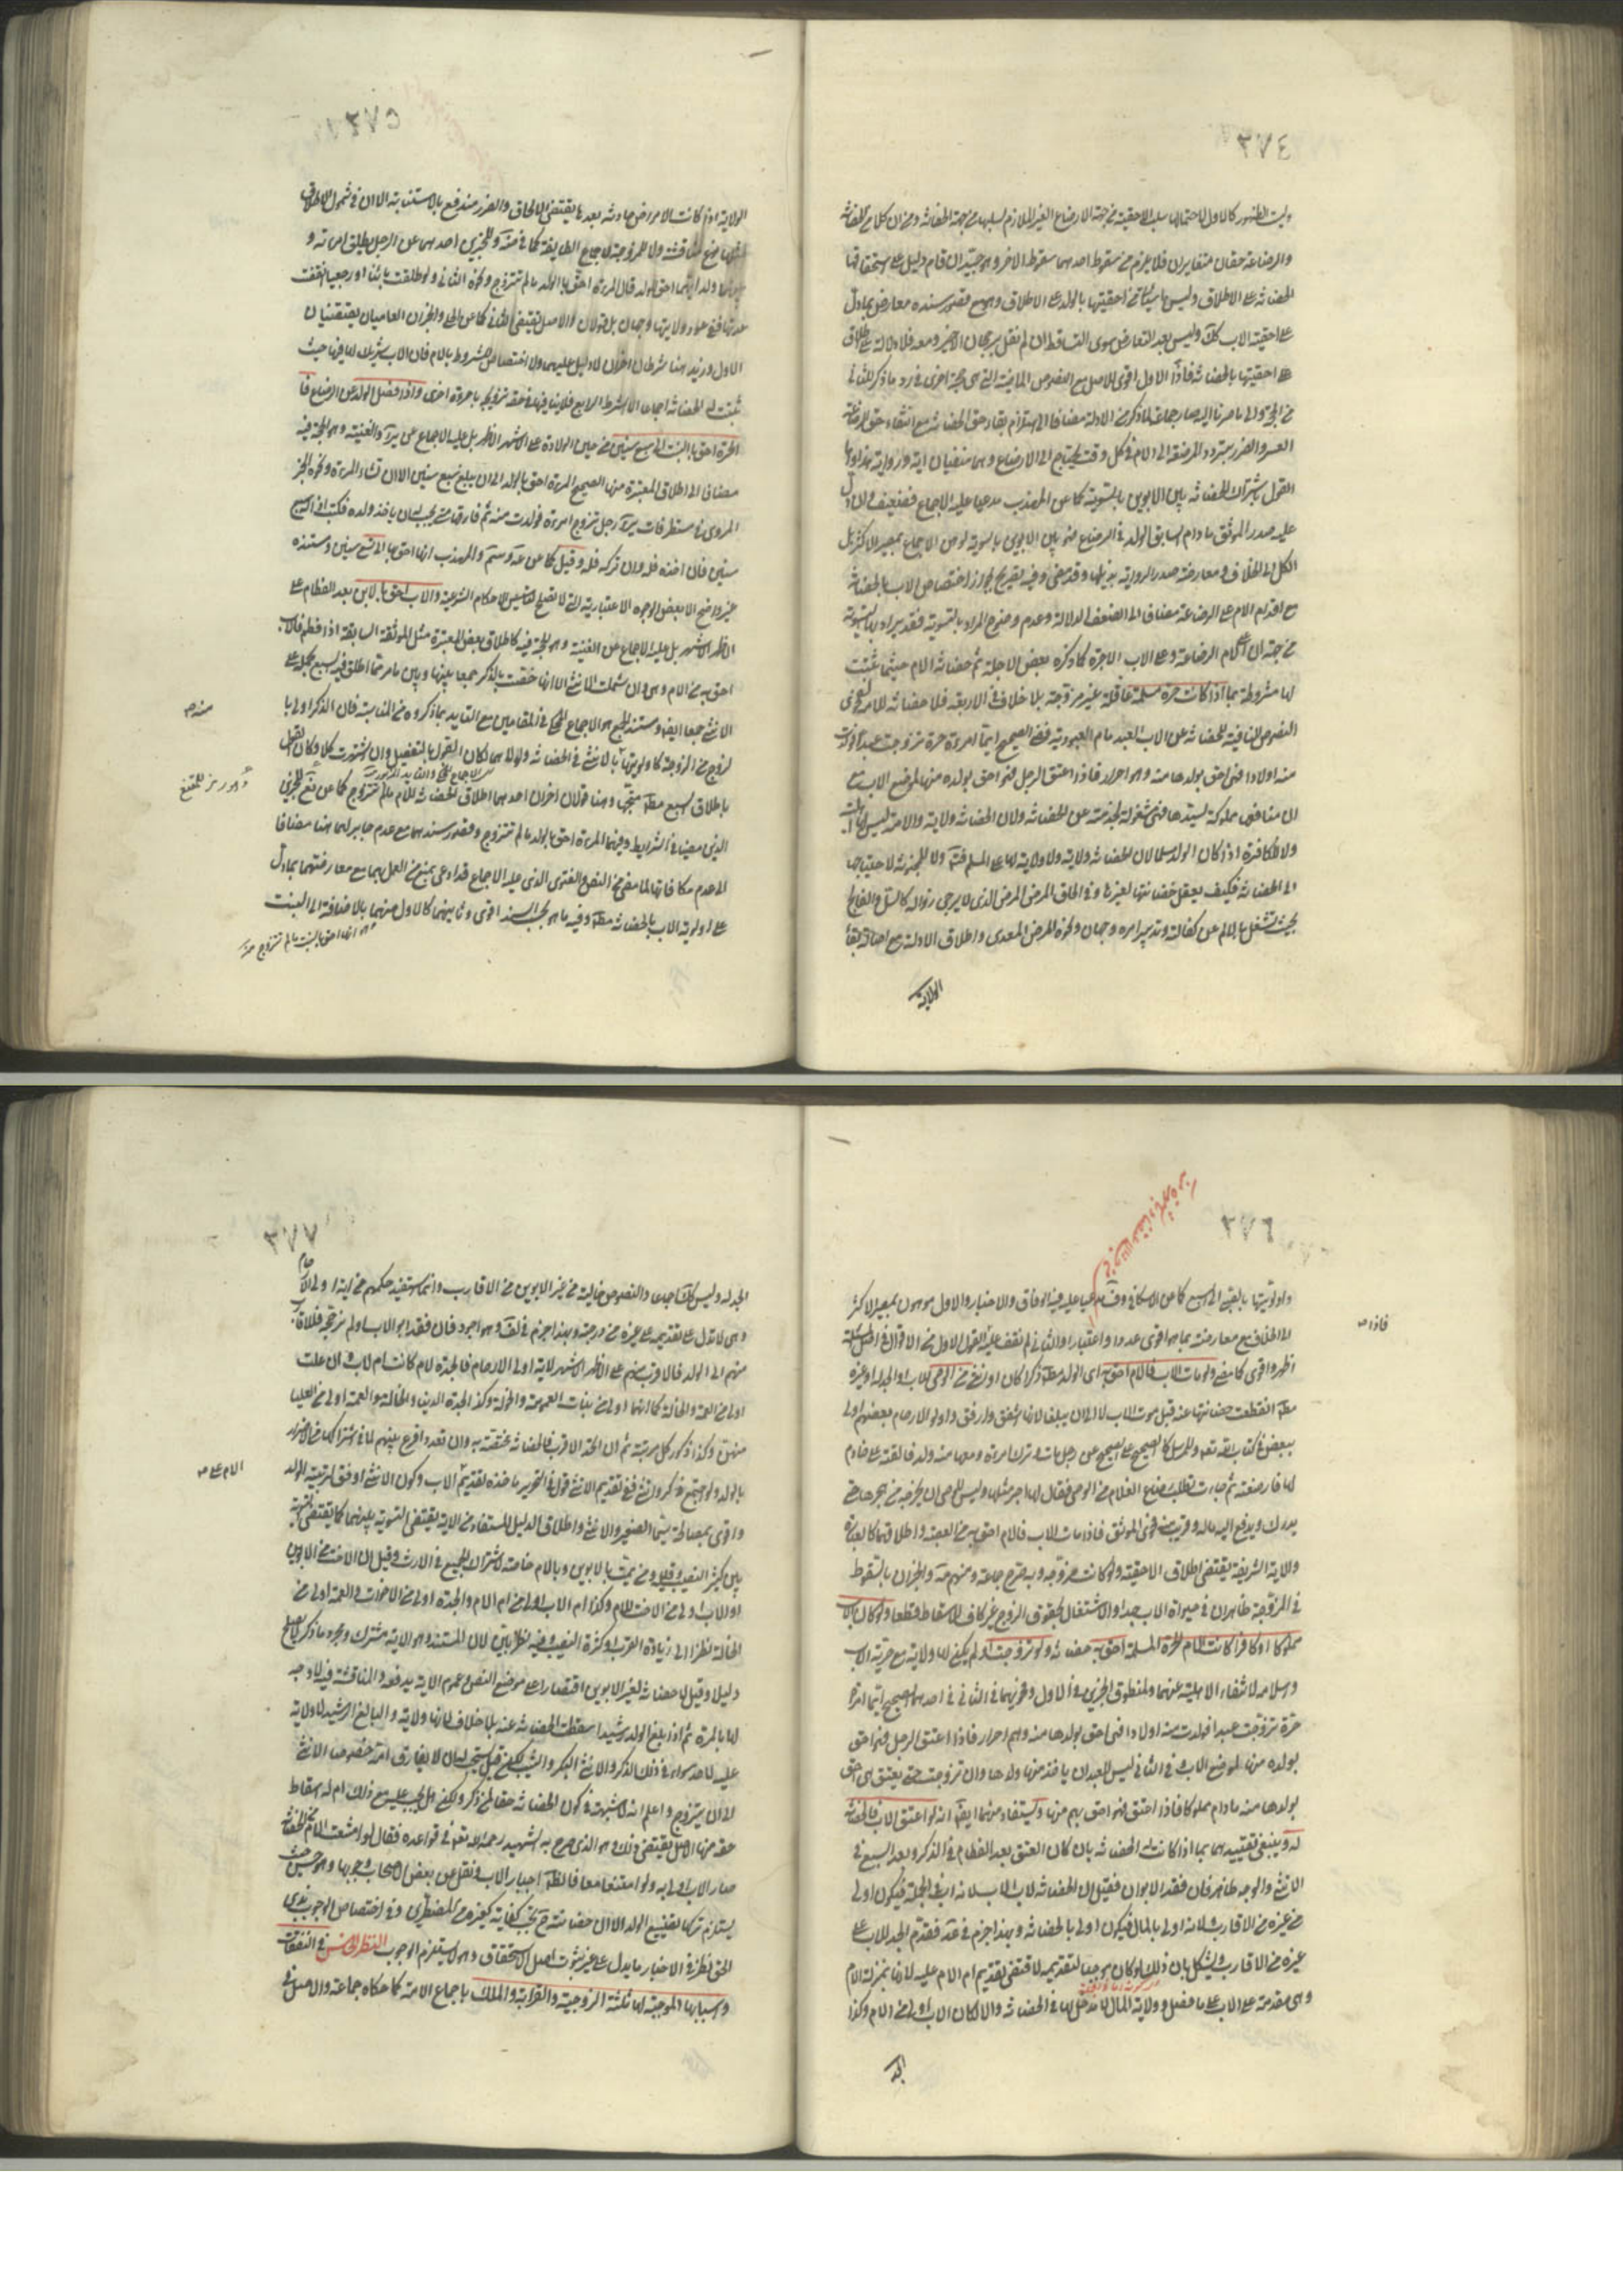 ٣٧٤
وليست الظهور كالاول لاحتمالها سلب الاحقية من جهة الارضاع الغير الملازم لسلبها من جهة الحضانة
والرضاعة حقان متغايران فلا يلزم من سقوط احدهما سقوط الاخر وهو جيد ان قام دليل على استحقاقها
الحضانة على الاطلاق وليس احقيتها بالولد على الاطلاق مع قصور سنده معارض بما دل
على احقية الاب كك وليس بعد التعارض سوى التساقط ان لم نقل برجحان الاخير ومعه فلا دلالة
على احقيتها بالحضانة فاذا الاول اقوى للاصل مع النصوص الماضية التي هي حجة اخرى في رد ما ذكر للثاني
العسر والضرر بتردد المرضعة الى الام في كل وقت يحتاج الى الارضاع وهما منفيان اية ورواية
القول باشتراك الحضانة بين الابوين بالسوية كما عن المهذب مدعيا عليه الاجماع فضعيف وان دل
عليه صدر الموثق ما دام الولد في الرضاع فهو بين الابوين بالسوية لوهن الاجماع بمصير الاكثر بل
الكل الى الخلاف ومعارضة صدر الرواية وفيه تصريح بجواز اختصاص الاب بالحضانة
مع اقدام الام على الرضاعة مضافا الى الضعف الدلالة وعدم وضوح المراد بالتسوية فقد يراد بها التسوية
من جهة ان على الام الرضاعة وعلى الاب الاجرة كما ذكره بعض الاجلة ثم حضانة الام حيثما ثبتت
لها مشروطة بما اذا كانت حرة مسلمة عاقلة غير مزوجة بلا خلاف في الاربعة فلا حضانة للامة
النصوص النافية للحضانة عن الاب العبد مادام العبودية ففي الصحيح ايما امرءة حرة تزوجت عبدا فولدت
منه اولادا فهي احق بولدها منه وهم احرار فاذا اعتق الرجل فهو احق بولده منها لموضع الاب
ان منافعها مملوكة لسيدها فهي مشغولة بخدمته عن الحضانة ولان الحضانة ولاية والامة ليست
ولا الكافرة اذا كان الولد مسلما لان الحضانة ولاية ولا ولاية لها على المسلم ولا المجنونة لاحتياجها
الى الحضانة فكيف يعقل حضانتها لغيرها وفي الحاق المرض المزمن الذي لا يرجى زواله كالسل والفالج
بحيث تشغل بالالم عن كفالته وتدبير امره وجهان وكذا المرض المعدي واطلاق الادلة مع اصالة بقاء
الولاية
٣٧٥
الولاية اذا كانت الامراض حادثة بعدها يقتضي الالحاق والضرر مندفع بالاستنابة الا ان في شمول الاطلاق
ولا المزوجة لاجماع الطايفة وللخبرين احدهما عن الرجل يطلق امرءته و
بينهما ولد ايهما احق بالولد قال المرءة احق بالولد ما لم تتزوج ونحوه الثاني ولو طلقت بائنا او رجعيا انقضت
عدتها ففي عود ولايتها وجهان بل قولان والاصل يقتضي الثاني كما عن الحلي والخبران العاميان يقتضيان
الاول وزيد هنا شرطان اخران لا دليل عليهما ولا اختصاص للشروط بالام فان الاب شريك لها فيها حيث
ثبتت له الحضانة اجماعا الا الشرط الرابع فلا ينافيها في حقه تزويجه بامرءة اخرى واذا فصل الولد عن الرضاع فا
الحرة احق بالبنت الى سبع سنين من حين الولادة على الاشهر الاظهر بل عليه الاجماع عن ير والغنية وهو الحجة فيه
مضافا الى اطلاق المعتبرة منها الصحيح المرءة احق بالولد الى ان يبلغ سبع سنين الا ان تشاء المرءة ونحوه الخبر
المروي في مستطرفات ير رجل تزوج امرءة فولدت منه ثم فارقها متى يجب له ان ياخذ ولده فكتب اذا صار له سبع
سنين فان اخذه فله وان تركه فله وقيل كما عن عه وسم والمهذب انها احق بها الى تسع سنين ومستنده
غير واضح الا بعض الوجوه الاعتبارية التي لا تصلح لتاسيس الاحكام الشرعية والاب احق بالابن بعد الفطام على
الاظهر الاشهر بل عليه الاجماع عن الغنية وهو الحجة فيه كاطلاق بعض المعتبرة مثل الموثقة السابقة اذا فطم فالاب
احق به من الام وهي وان شملت الانثى الا انها خصت بالذكر جمعا بينها وبين ما مر مما اطلق فيه السبع بحمله على
الانثى جمعا ايضا ومستند الجمع هو الاجماع المحكي في المقامين مع التاييد بما ذكروه من المناسبة فان الذكر اولى با
لزوج من الزوجة كاولويتها بالانثى في الحضانة ولولاهما لكان القول بالتفصيل وان اشتهرت كلا وكان القول
باطلاق السبع مط متجها وهنا قولان اخران احدهما اطلاق الحضانة للام ما لم تتزوج كما عن نع للخبرين
الذين مضيا في الشرايط وفيهما المرءة احق بالولد ما لم تتزوج وقصور سندهما مع عدم جابر لهما هنا مضافا
الى عدم مكافاتهما لما مضى من النص والفتوى الذي عليه الاجماع قد ادعى يمنع من العمل بهما مع معارضتهما بما دل
على اولوية الاب بالحضانة مط وفيه ما هو بحسب السند اقوى وثانيهما كالاول منهما بالاضافة الى البنت
٣٧٦
واولويتها بالصبي الى السبع كما عن الاسكافي وف مدعيا عليه فيه الوفاق والاخبار والاول موهون بمصير الاكثر
الى الخلاف مع معارضته بما هو اقوى عددا واعتبارا والثاني لم نقف عليه القول الاول من الاقوال في اصل المسئلة
اظهر واقوى كما مضى ولو مات الاب فالام احق به اي الولد مط ذكرا كان او انثى من الوصي للاب او الجد له او غيره
مط انقطعت حضانتها عنه قبل موت الاب ام لا الى ان يبلغ لانها اشفق وارفق واولو الارحام بعضهم اولى
ببعض في كتاب الله تعالى وللمرسل كالصحيح على الصحيح عن رجل مات وترك امرءة ومعها منه ولد فالقته على خادم
لها فارضعته ثم جاءت تطلب رضاع الغلام من الوصي فقال لها اجر مثلها وليس للوصي ان يخرجه من حجرها حتى
يدرك ويدفع اليه ماله وقريب منه فحوى الموثق فاذا مات الاب فالام احق به من العصبة واطلاقهما كالعبارة
والاية الشريفة يقتضي اطلاق الاحقية ولو كانت مزوجة وبه صرح جماعة ومنهم مة والخبران بالسقوط
في المزوجة ظاهران في حيوة الاب جدا والاشتغال بحقوق الزوج غير كاف للاسقاط قطعا ولو كان الاب
مملوكا او كافرا كانت الام الحرة المسلمة احق به حضانة ولو تزوجت ولم يكن لها ولاية مع حرية الاب
واسلامه لانتفاء الاهلية عنهما ولمنطوق الخبرين في الاول وفحويهما في الثاني في احدهما الصحيح ايما امرءة
حرة تزوجت عبدا فولدت منه اولادا فهي احق بولدها منه وهم احرار فاذا اعتق الرجل فهو احق
بولده منها لموضع الاب وفي الثاني ليس للعبد ان ياخذ منها ولدها وان تزوجت حتى يعتق هي احق
بولدها منه مادام مملوكا فاذا اعتق فهو احق بهم منها ويستفاد منهما ايضا انه لو اعتق الاب فالحضانة
له وينبغي تقييدهما بما اذا كانت له الحضانة بان كان العتق بعد الفطام في الذكر وبعد السبع في
الانثى والوجه ظاهر فان فقد الابوان فقيل ان الحضانة لاب الاب لانه اب في الجملة فيكون اولى
من غيره من الاقارب ولانه اولى بالمال فيكون اولى بالحضانة وبهذا جزم في عد فقدم الجد للاب على
غيره من الاقارب ويشكل بان ذلك لو كان موجبا لتقديمه لاقتضى تقديم ام الام عليه لانها بمنزلة الام
وهي مقدمة على الاب على ما فصل وولاية المال لا مدخل لها في الحضانة والا لكان الاب اولى من الام وكذا
فاذا
الجد
٣٧٧
الجد له وليس كك اجماعا والنصوص خالية من غير الابوين من الاقارب وانما استفيد حكمهم من اية اولي الارحام
وهي لا تدل على تقديمه على غيره من درجته وبهذا جزم في لف وهو اجود فان فقد ابو الاب او لم نرجحه فللاقارب
منهم الى الولد فالاقرب منهم على الاظهر الاشهر لاية اولي الارحام فالجدة لام كانت ام لاب وان علت
اولى من العمة والخالة كما انهما اولى من بنات العمومة والخؤلة وكذا الجدة الدنيا والخالة والعمة اولى من العليا
منهن وكذا ذكور كل مرتبة ثم ان اتحد الاقرب فالحضانة مختصة به وان تعدد اقرع بينهم لما في اشتراكها من الاضرار
بالولد ولو اجتمع ذكر وانثى ففي تقديم الانثى قول في التحرير ماخذه تقديم الام على الاب وكون الانثى اوفق لتربية الولد
واقوم بمصالحه سيما الصغير والانثى واطلاق الدليل المستفاد من الاية يقتضي التسوية بينهما كما يقتضي التسوية
بين كثير النصيب وقليله ومن يمت بالابوين وبالام خاصة لاشتراك الجميع في الارث وقيل ان الاخت من الابوين
او الاب اولى من الاخت للام وكذا ام الاب اولى من ام الام والجدة اولى من الاخوات والعمة اولى من
الخالة نظرا الى زيادة القرب او كثرة النصيب وفيه نظر بين لان المستند وهو الاية مشترك ومجرد ما ذكر لا يصلح
دليلا وقيل لا حضانة لغير الابوين اقتصارا على موضع النص وعموم الاية يدفعه والمناقشة فيه لا وجه
لها بالمرة ثم اذا بلغ الولد رشيدا سقطت الحضانة عنه بلا خلاف لانها ولاية والبالغ الرشيد لا ولاية
عليه لاحد سواء في ذلك الذكر والانثى البكر والثيب لكن قيل يستحب له ان لا يفارق امه خصوصا الانثى
الى ان يتزوج واعلم انه لا شبهة في كون الحضانة حقا لمن ذكر ولكن هل تجب عليه مع ذلك ام له اسقاط
حقه منها الاصل يقتضي ذلك وهو الذي صرح به الشهيد رحمه الله في قواعده فقال لو امتنعت الام من الحضانة
صار الاب اولى به ولو امتنعا معا فالظ اجبار الاب ونقل عن بعض الاصحاب وجوبها وهو حسن حيث
يستلزم تركها تضييع الولد الا ان حضانته حينئذ تجب كفاية كغيره من المضطرين وفي اختصاص الوجوب بذي
الحق نظر وليس في الاخبار ما يدل على غير ثبوت اصل الاستحقاق وهو لا يستلزم الوجوب النظر الخامس في النفقات
واسبابها الموجبة لها ثلثة الزوجية والقرابة والملك باجماع الامة كما حكاه جماعة والاصل في
الام على